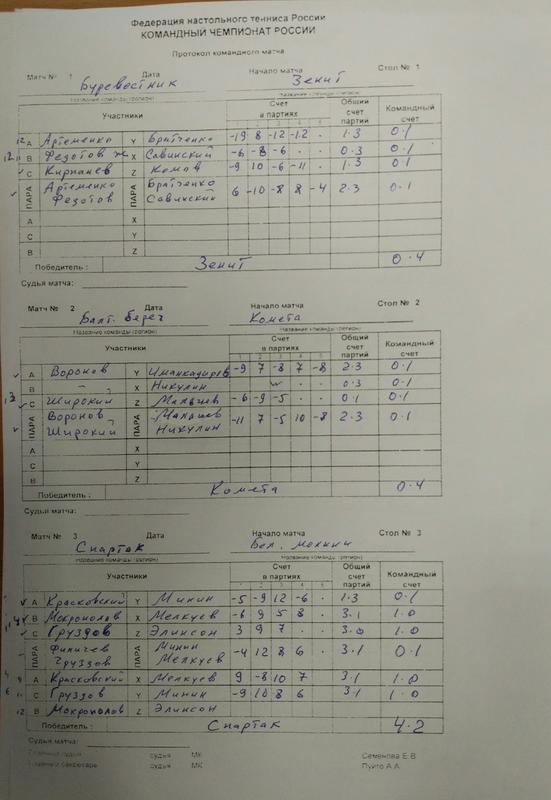 Федерация настольного тенниса России
КОМАНДНЫЙ ЧЕМПИОНАТ РОССИИ
Протокол командного матча
Матч № 1 Дата Начало матча Стол № 1
Буревестник Зенит
Название команды (регион) Название команды (регион)
Участники Счет в партиях Общий счет партий Командный счет
12 А Артеменко Y Братченко -19 8 -12 -12 . 1.3 0.1
В Федотов X Савинский -6 -8 -6 . . 0.3 0.1
С Кирпанев Z Комов -9 10 -6 -11 . 1.3 0.1
ПАРА Артеменко Федотов ПАРА Братченко Савинский 6 -10 -8 8 -4 2.3 0.1
А X
С Y
В Z
Победитель : Зенит 0.4
Судья матча:
Матч № 2 Дата Начало матча Стол № 2
Балт. берег Комета
Название команды (регион) Название команды (регион)
Участники Счет в партиях Общий счет партий Командный счет
1 2 3 4 5
А Воронов Y -9 7 -8 7 -8 2.3 0.1
В - " - X Никулин 0.3 0.1
С Широкий Z Малышев -6 -9 -5 0.1 0.1
ПАРА Воронов Широкий ПАРА Малышев Никулин -11 7 -5 10 -8 2.3 0.1
А X
С Y
В Z
Победитель : Комета 0.4
Судья матча:
Матч № 3 Дата Начало матча Стол № 3
Спартак Бел. молнии
Название команды (регион) Название команды (регион)
Участники Счет в партиях Общий счет партий Командный счет
А Красковский Y Минин -5 -9 12 -6 . 1.3 0.1
В Мокрополов X Мелкуев -6 9 5 8 3.1 1.0
С Груздов Z Элинсон 3 9 7 . . 3.0 1.0
ПАРА Филичев Груздов ПАРА Минин Мелкуев -4 12 8 6 3.1 0.1
А Красковский X Мелкуев 9 -8 10 7 3.1 1.0
С Груздов Y Минин -9 10 8 6 3.1 1.0
12 В Мокрополов Z Элинсон
Победитель : Спартак 4.2
Судья матча:
Главный судья судья МК Семенова Е.В.
Главный секретарь судья МК Пуйто А.А.